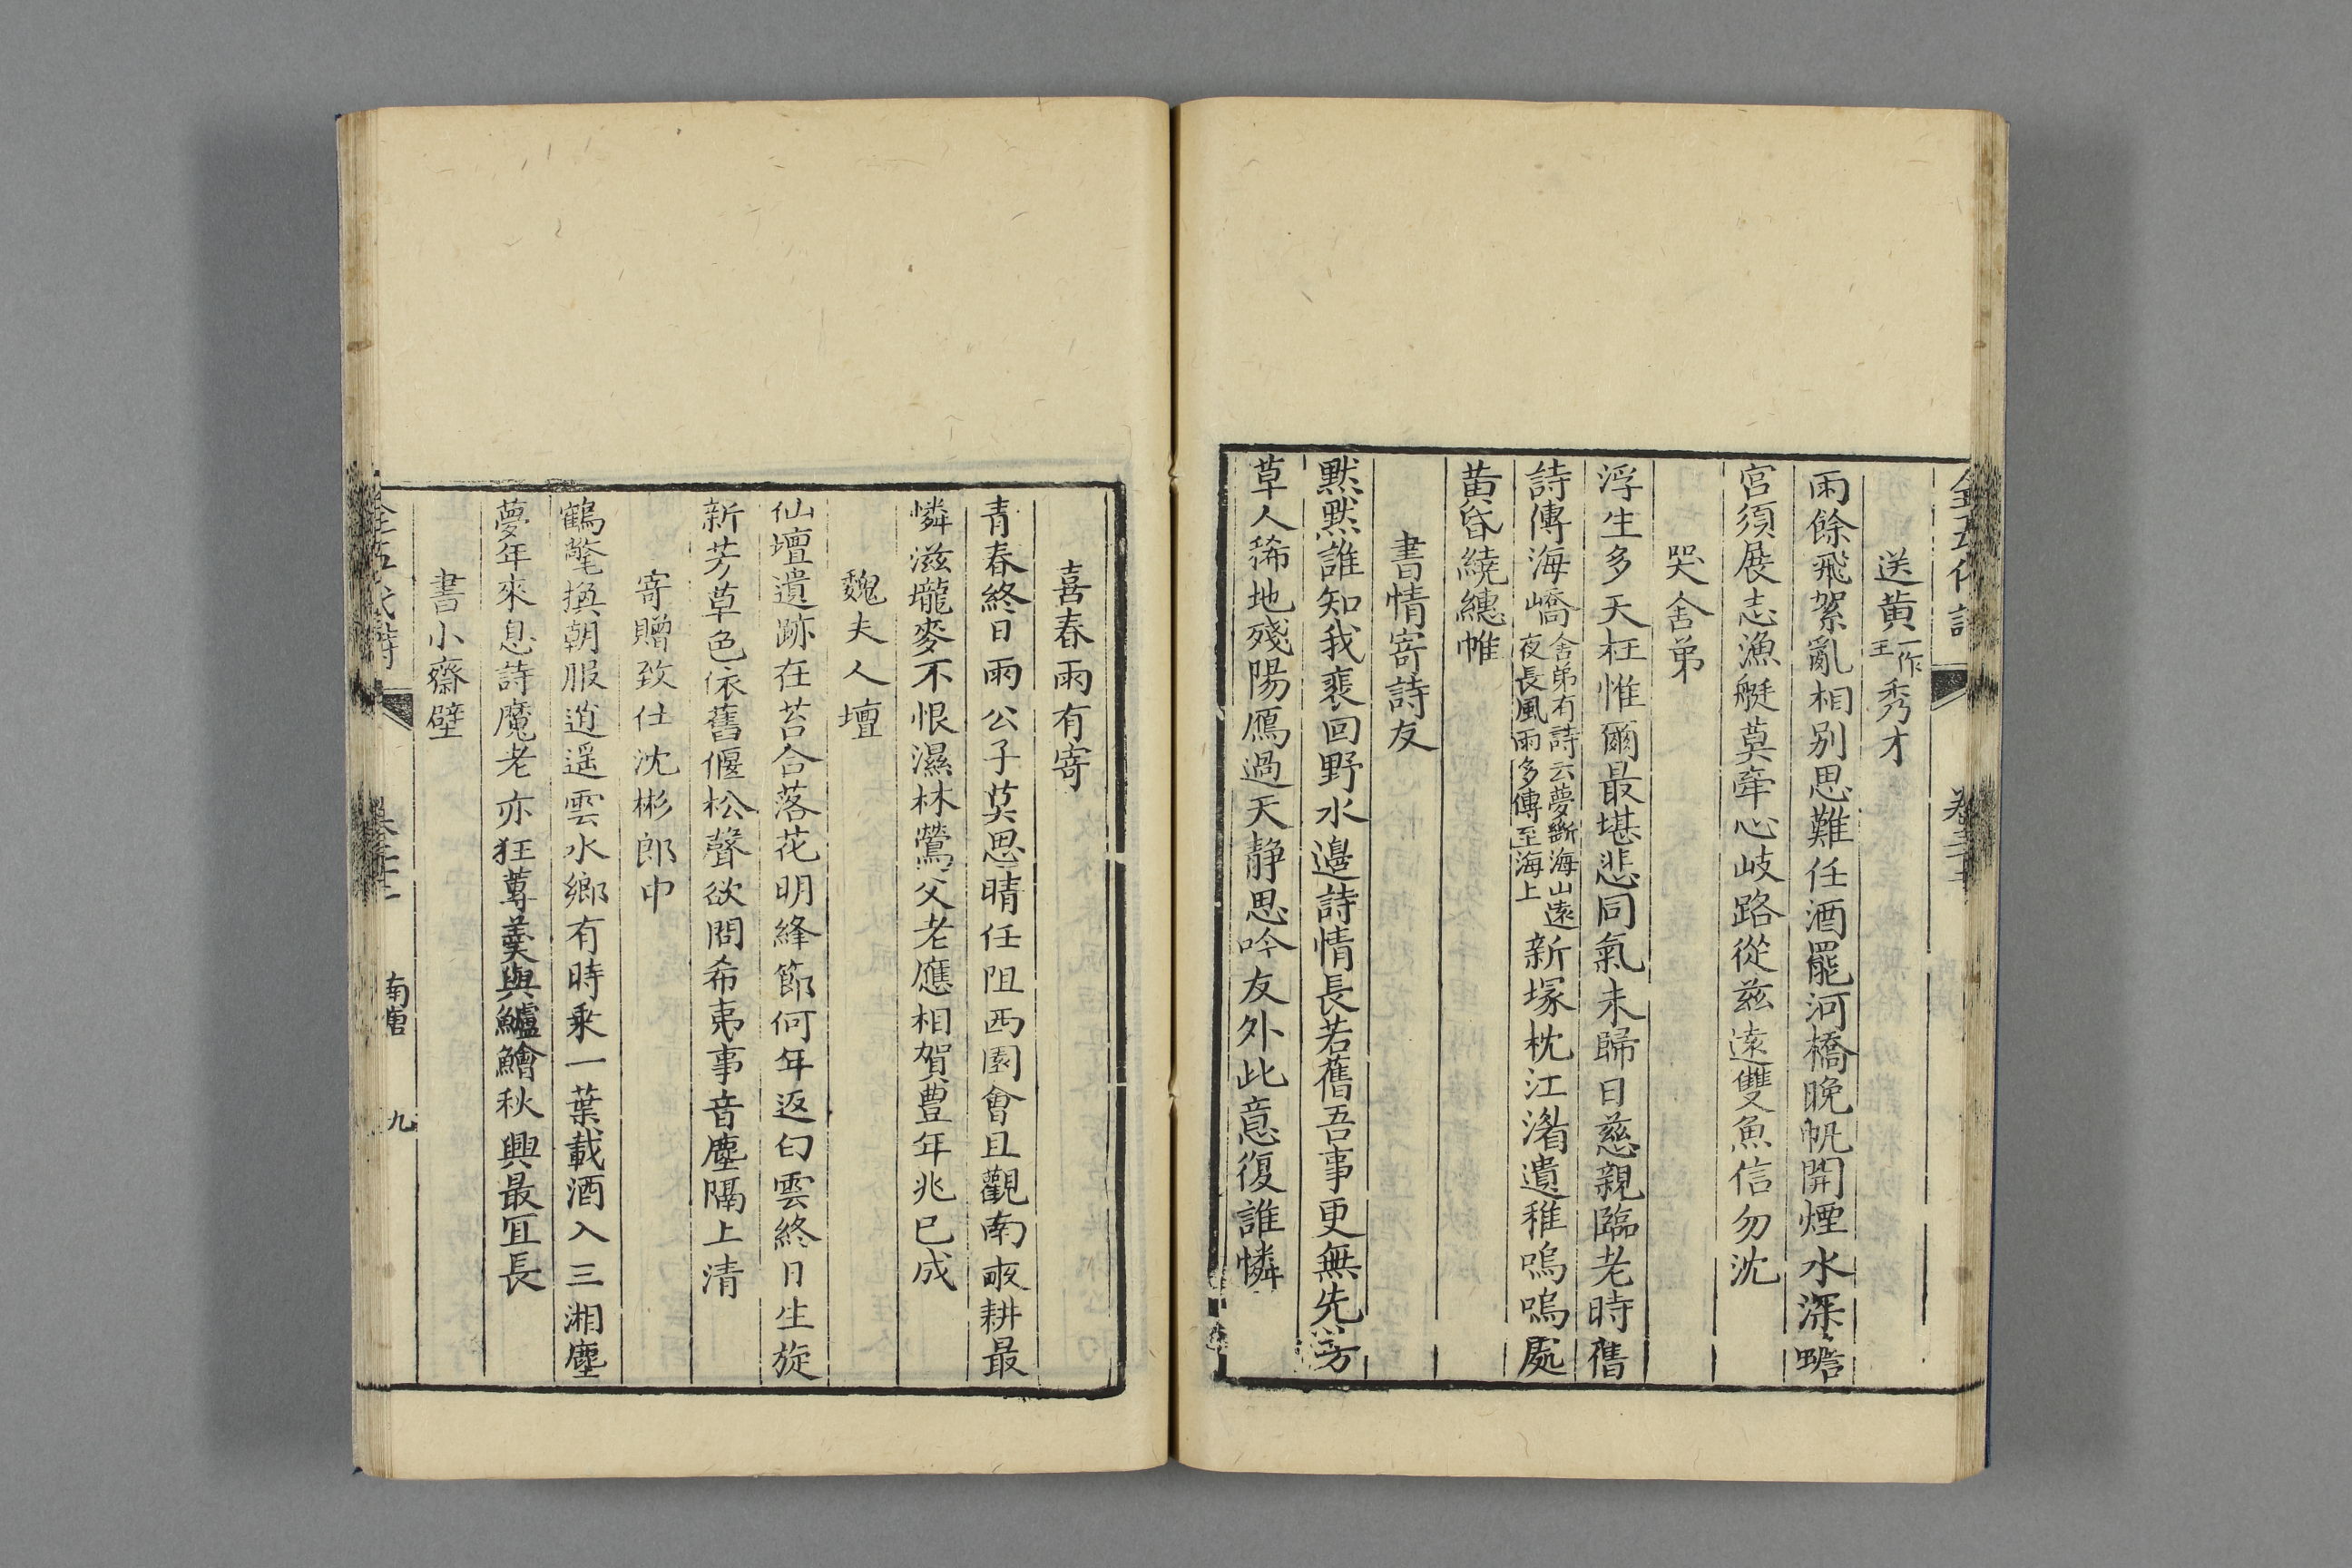 全五代詩
送黄一作王秀才
雨餘飛絮亂相别思難任酒罷河橋晚帆開煙水深蟾
宫須展志漁艇莫牽心岐路從兹遠雙魚信勿沈
哭舍弟
浮生多夭枉惟爾最堪悲同氣未歸日慈親臨老時舊
詩傳海嶠舍弟有詩云夢斷海山遠夜長風雨多傳至海上新塚枕江湄遺稚嗚嗚處
黄昏繞繐帷
書情寄詩友
默默誰知我裴回野水邊詩情長若舊吾事更無先芳
草人稀地殘陽鴈過天静思吟友外此意復誰憐
喜春雨有寄
青春終日雨公子莫思晴任阻西園會且觀南畝耕最
憐滋壠麥不恨濕林鶯父老應相賀豊年兆已成
魏夫人壇
仙壇遺跡在苔合落花明絳節何年返白雲終日生旋
新芳草色依舊偃松聲欲問希夷事音塵隔上清
寄贈致仕沈彬郎中
鶴氅換朝服逍遥雲水鄉有時乘一葉載酒入三湘塵
夢年來息詩魔老亦狂蓴羹與鱸鱠秋興最宜長
書小齋壁
全五代詩
南唐
九